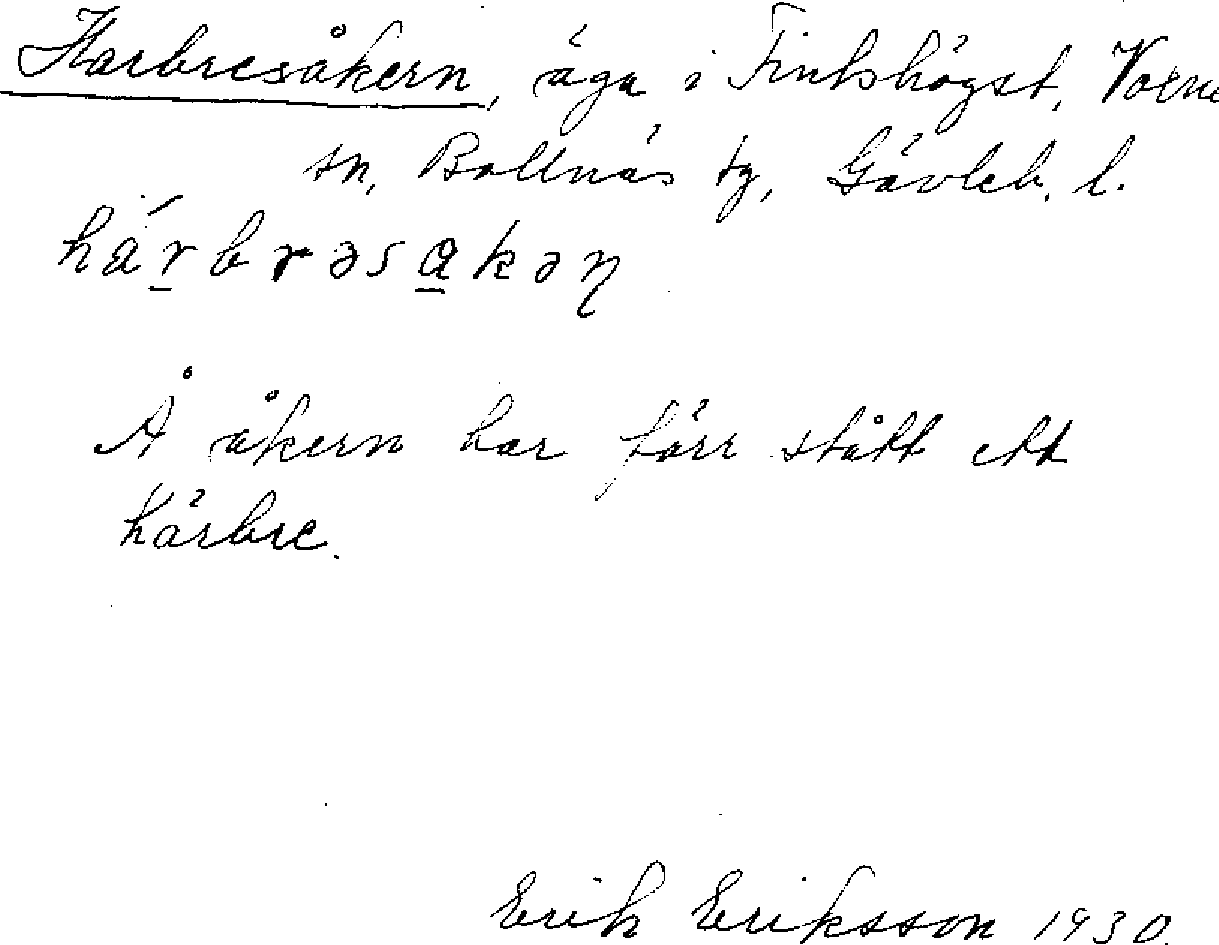 Härbresåkern, äga i Finkshögst, Voxne
sn, Bollnäs tg, Gävleb. l.
hä́rbrəsakəɳ
Å åkern har förr stått ett
härbre.
Erik Eriksson 1930.